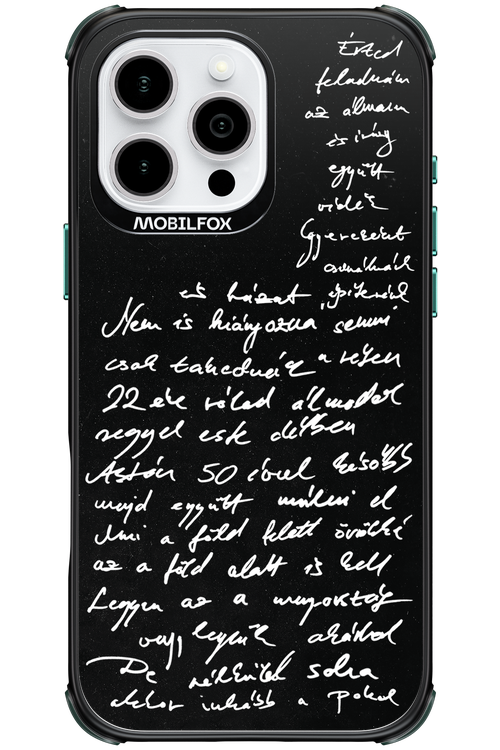 MOBILFOX
Érted
feladnám
az álmaim
és így
együtt
veled
Gyereket
csinálnánk
és házat építenénk
Nem is hiányozna semmi
csak
22 éve rólad álmodok
reggel este délben
Aztán 50 évvel később
majd együtt múlni el
Ami a föld felett örökké
az a föld alatt is kell
Legyen az a mennyország
vagy legyünk akárhol
De nélküled soha
akkor inkább a Pokol